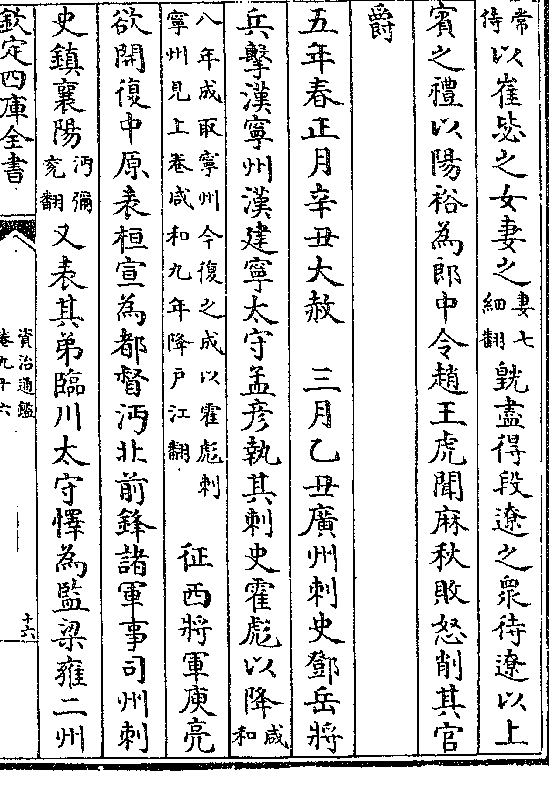 常侍以崔毖之女妻之妻七細翻皝盡得段遼之衆待遼以上
賓之禮以陽裕為郎中令趙王虎聞麻秋敗怒削其官
爵
五年春正月辛丑大赦　三月乙丑廣州刺史鄧岳將
兵擊漢寧州漢建寧太守孟彦執其刺史霍彪以降咸和
八年成取寧州今復之成以霍彪刺寧州見上卷咸和九年降户江翻　征西將軍庾亮
欲開復中原表桓宣為都督沔北前鋒諸軍事司州刺
史鎮襄陽沔彌兖翻又表其弟臨川太守懌為監梁雍二州
欽定四庫全書
資治通鑑
卷九十六
十六